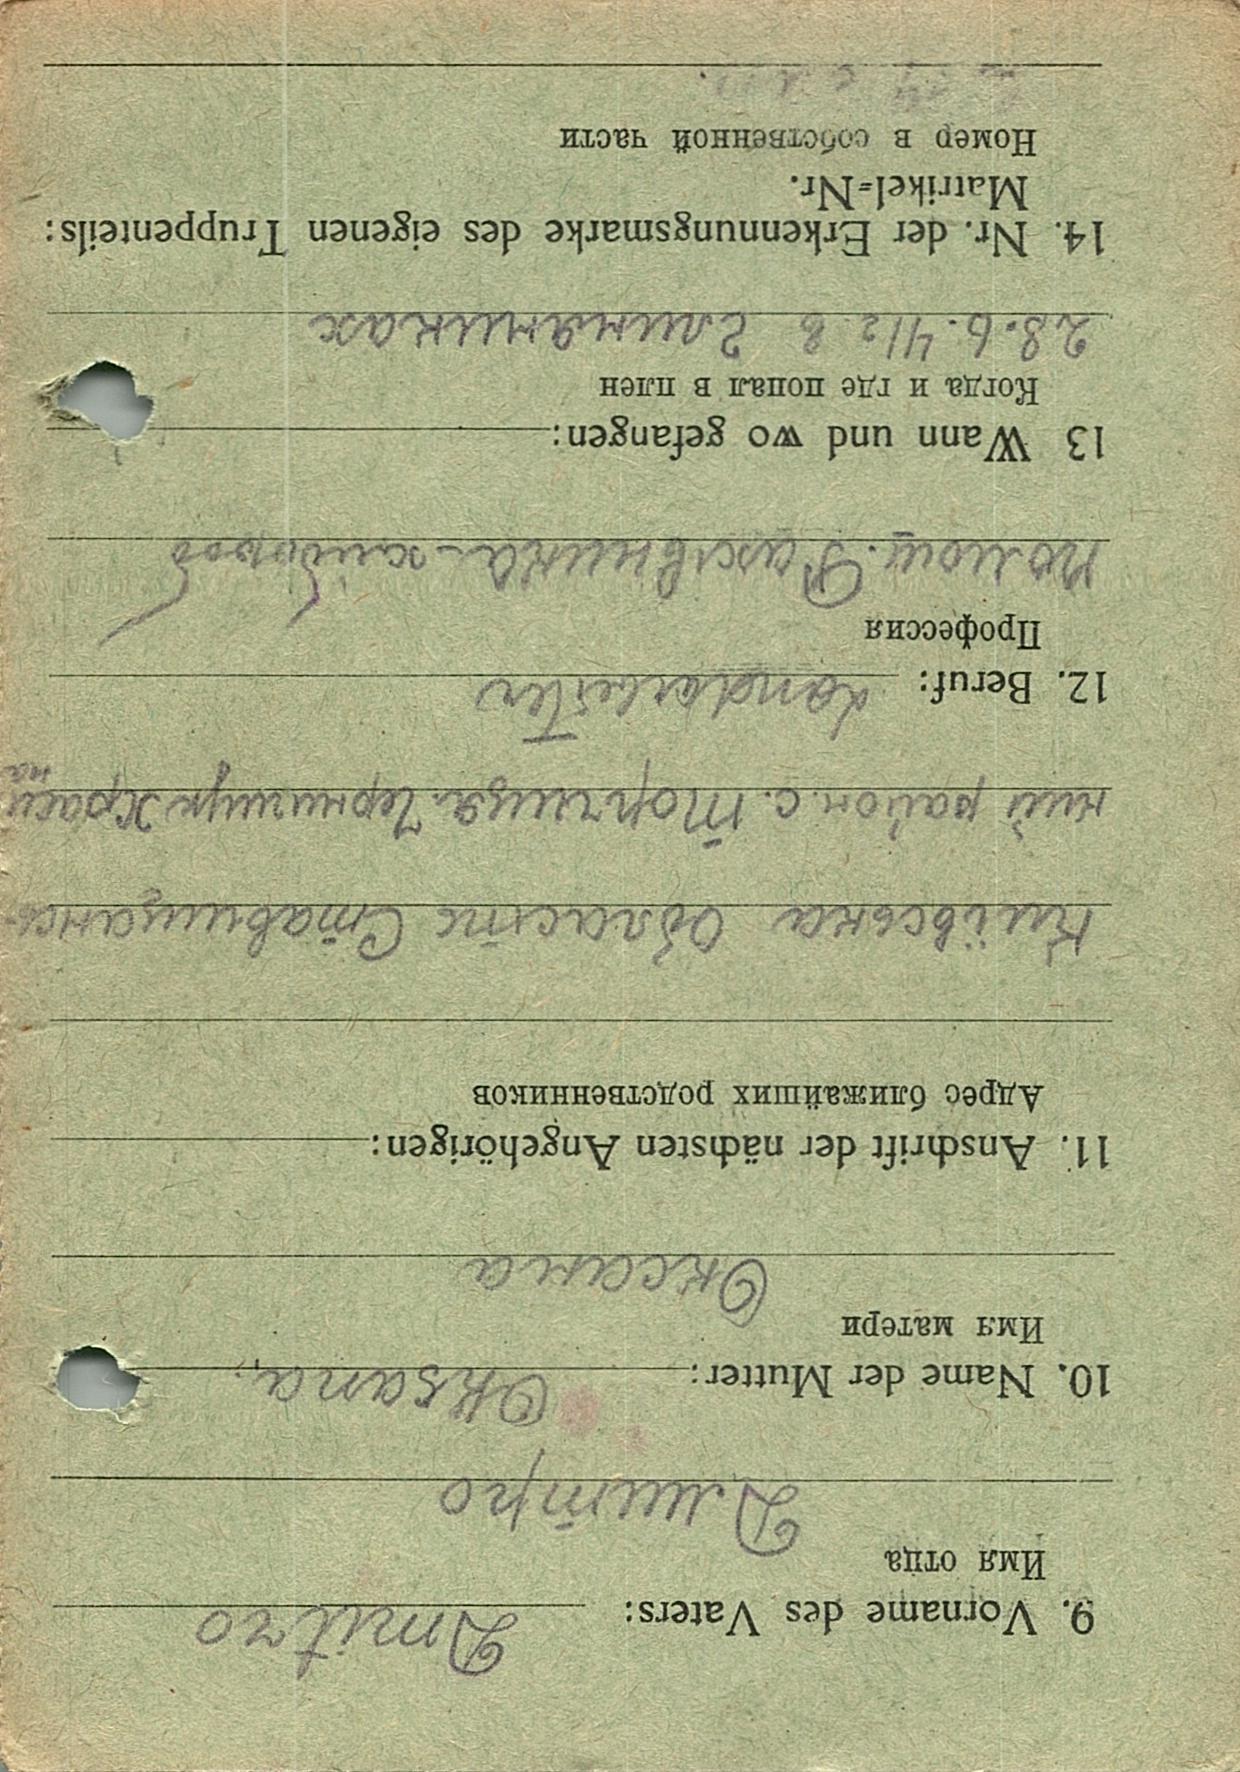 9. Vorname des Vaters: Dmitro
Имя отца
Дмитро
10. Name der Mutter: Oksana.
Имя матери
Оксана
11. Anschrift der nächsten Angehörigen:
Адрес ближайших родственников
Київська Область Ставищансь-
кий район. с. Торчиця. Чернищук
12. Beruf: Landarbeiter
Профессия
помощ.
13 Wann und wo gefangen:
Когда и где попал в плен
28. 6. 41 г. в
14. Nr. der Erkennungsmarke des eigenen Truppenteils:
Matrikel=Nr.
Номер в собственной части